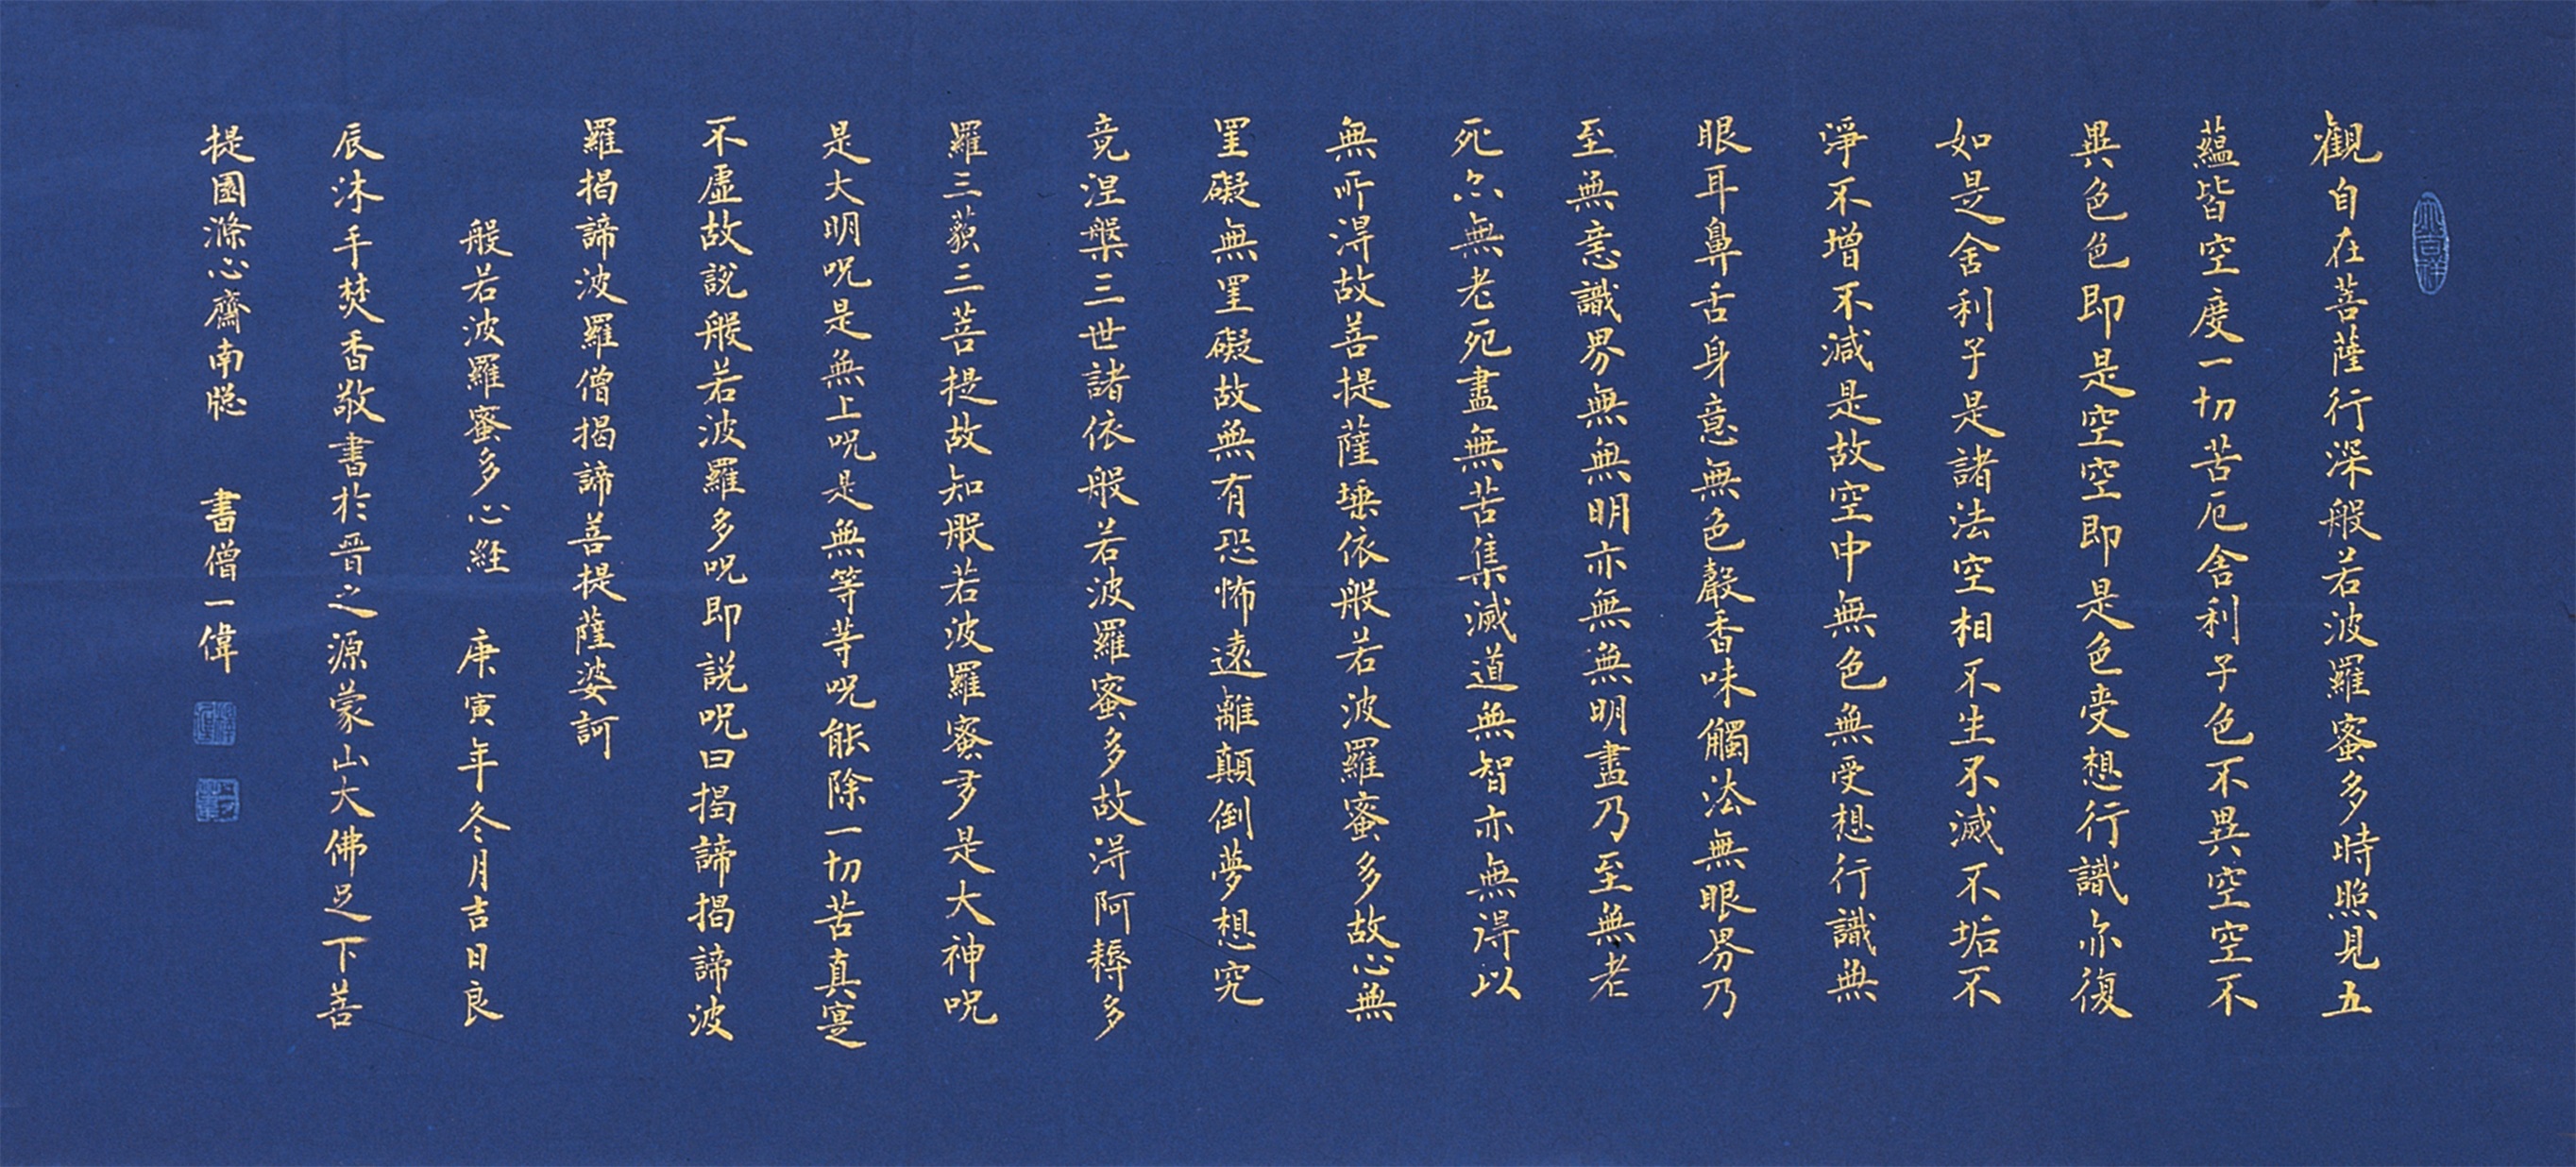 大吉祥
觀自在菩薩行深般若波羅蜜多時照見五
蘊皆空度一切苦厄舍利子色不異空空不
異色色即是空空即是色受想行識亦復
如是舍利子是諸法空相不生不滅不垢不
淨不增不減是故空中無色無受想行識無
眼耳鼻舌身意無色聲香味觸法無眼界乃
至無意識界無無明亦無無明盡乃至無老
死亦無老死盡無苦集滅道無智亦無得以
無所得故菩提薩埵依般若波羅蜜多故心無
罣礙無罣礙故無有恐怖遠離顛倒夢想究
竟涅槃三世諸依般若波羅蜜多故得阿耨多
羅三藐三菩提故知般若波羅蜜多是大神呪
是大明呪是無上呪是無等等呪能除一切苦真寔
不虛故說般若波羅多呪即説呪曰揭諦揭諦波
羅揭諦波羅僧揭諦菩提薩婆訶
般若波羅蜜多心経 庚寅年冬月吉日良
辰沐手焚香敬書於晉之源蒙山大佛足下菩
提國滌心齋南牎 書僧一偉